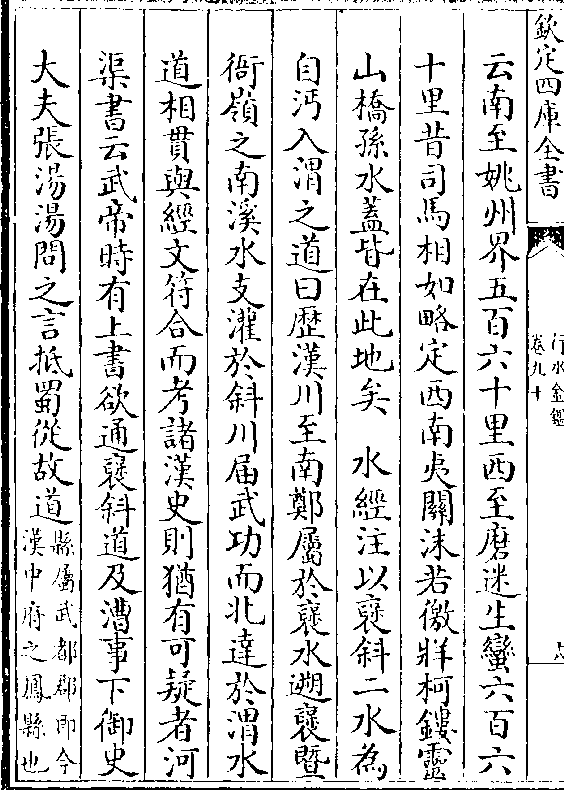 欽定四庫全書
行水金鑑
卷九十
云南至姚州界五百六十里西至磨迷生蠻六百六
十里昔司馬相如略定西南夷關沬若徼牂柯鏤靈
山橋孫水蓋皆在此地矣　水經注以襃斜二水為
自沔入渭之道曰歷漢川至南鄭屬於襃水遡襃暨
衙嶺之南溪水支灌於斜川届武功而北達於渭水
道相貫與經文符合而考諸漢史則猶有可疑者河
渠書云武帝時有上書欲通襃斜道及漕事下御史
大夫張湯湯問之言抵蜀從故道縣屬武都郡即今
漢中府之鳳縣也